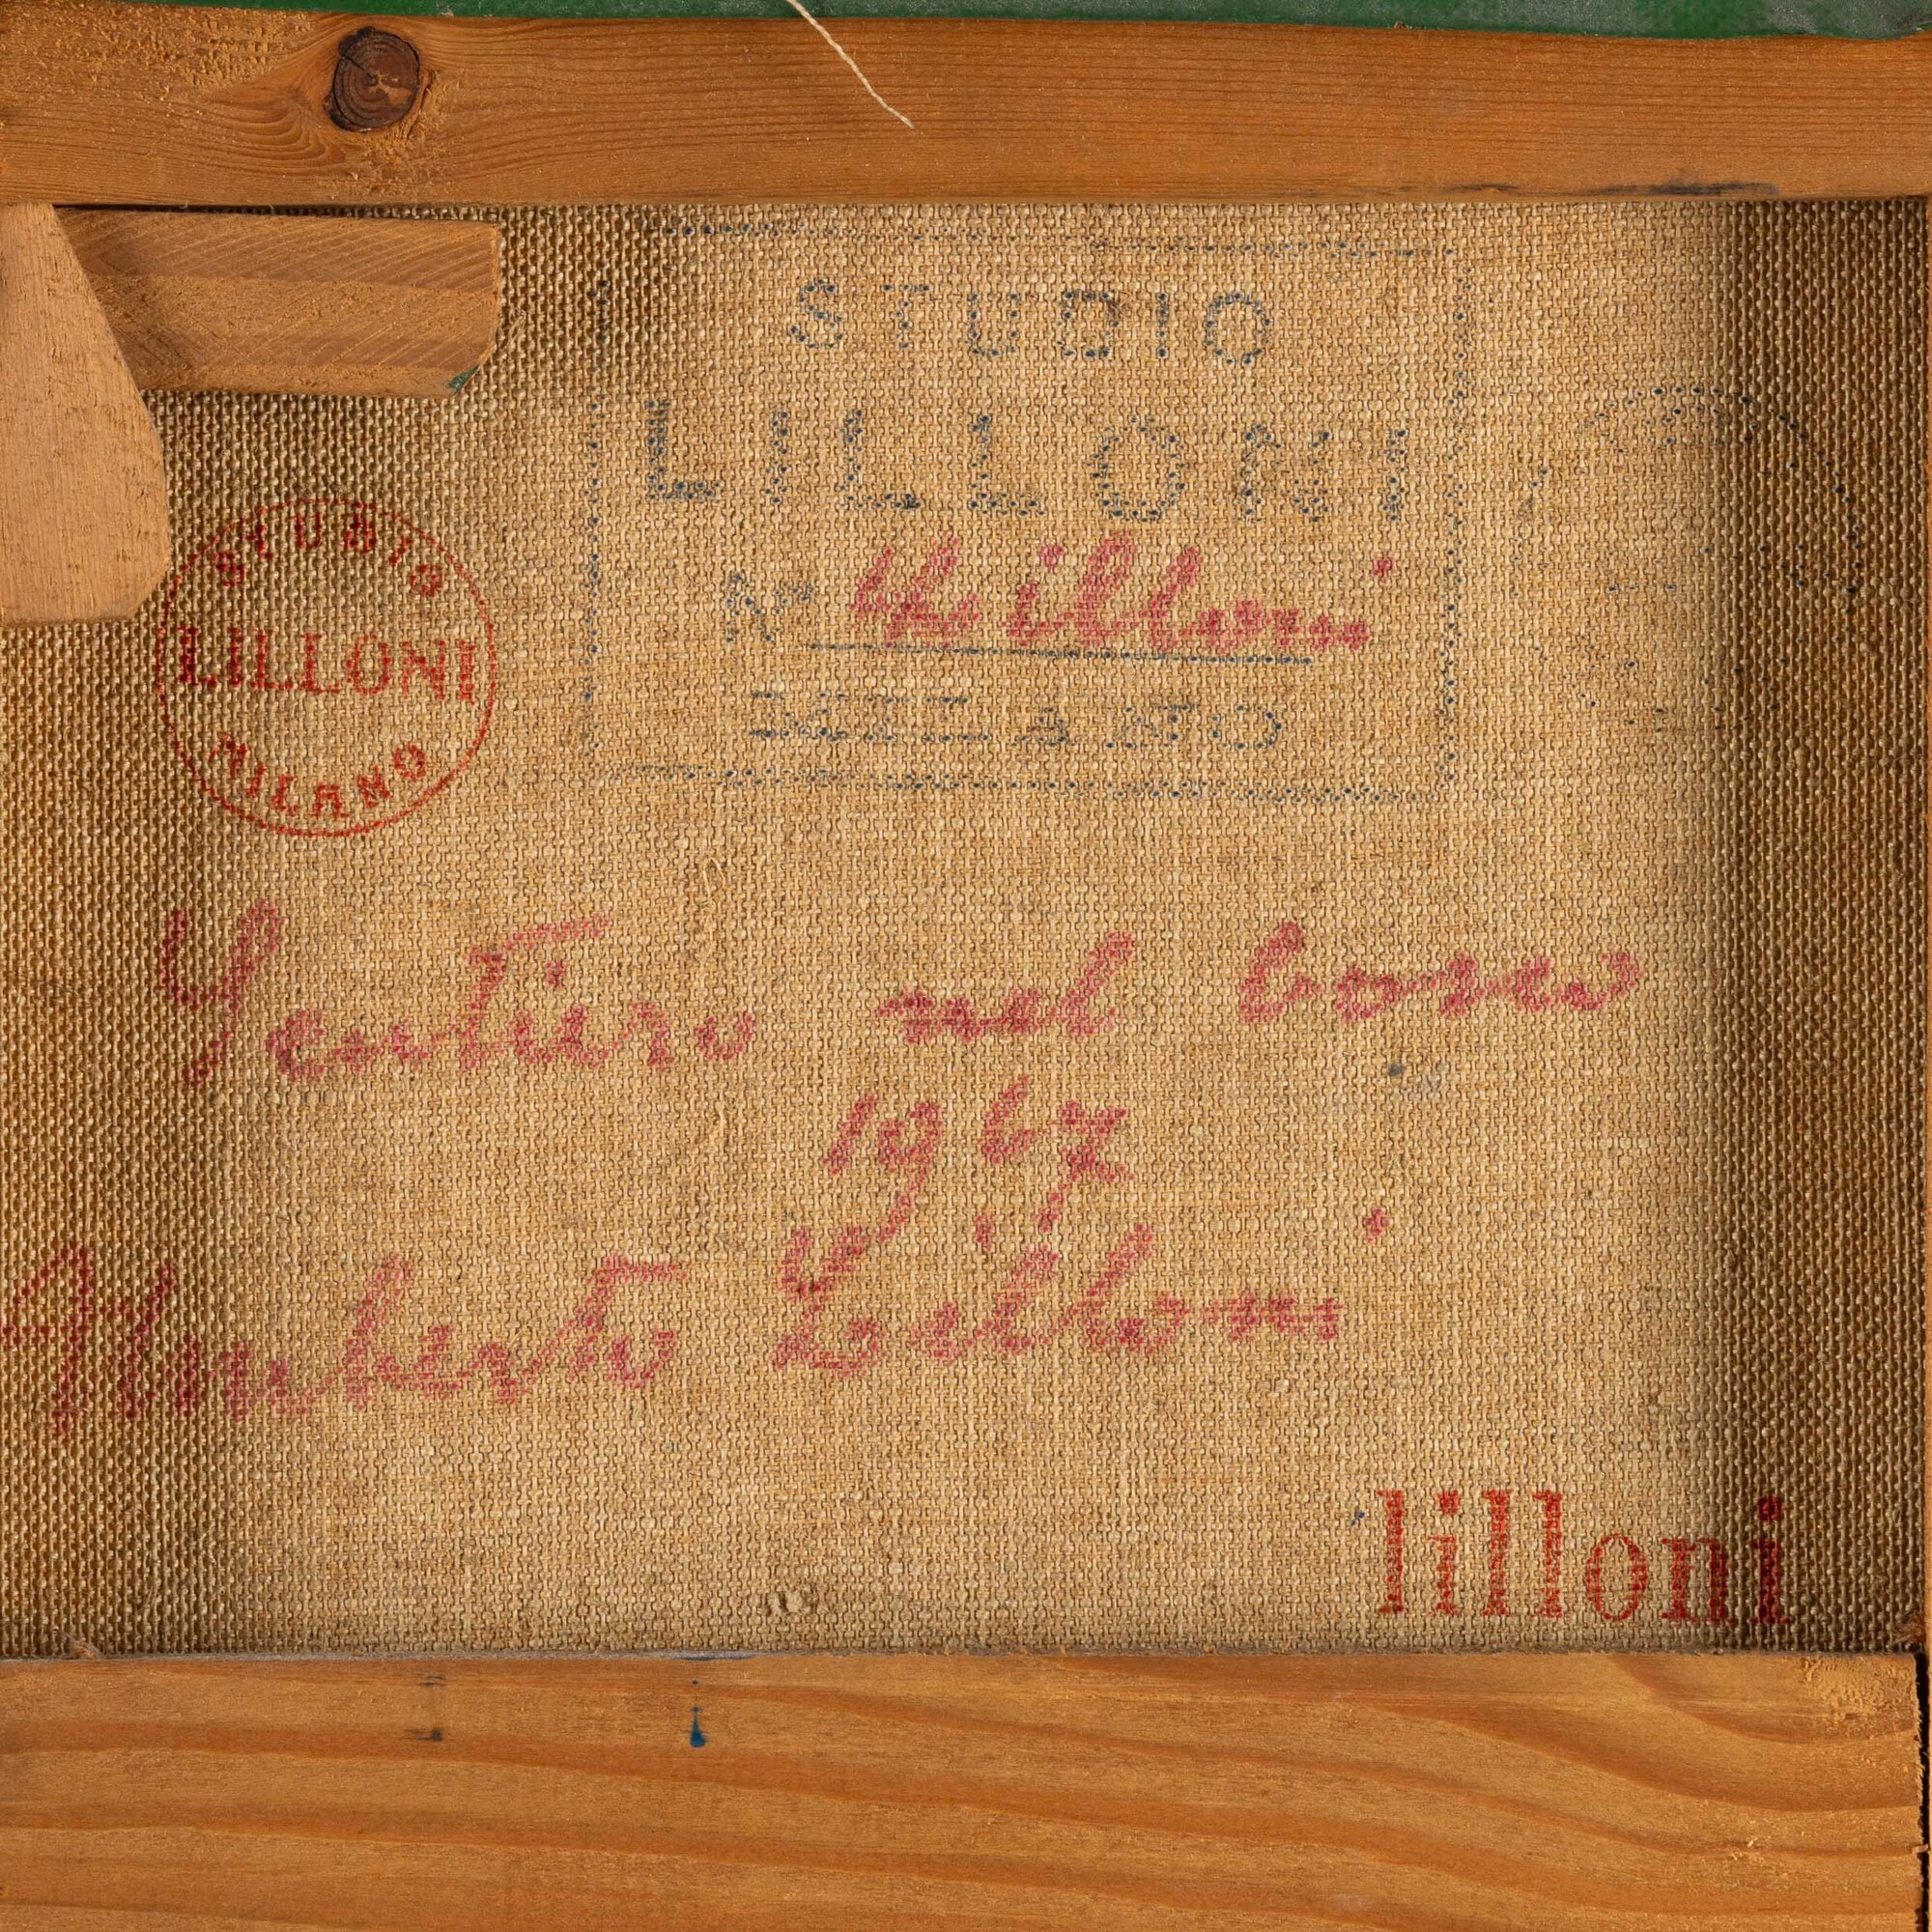 STUDIO
LILLONI
N° Lilloni
MILANO
STUDIO
LILLONI
MILANO
Sentiero nel bosco
1967
Umberto Lilloni
lilloni